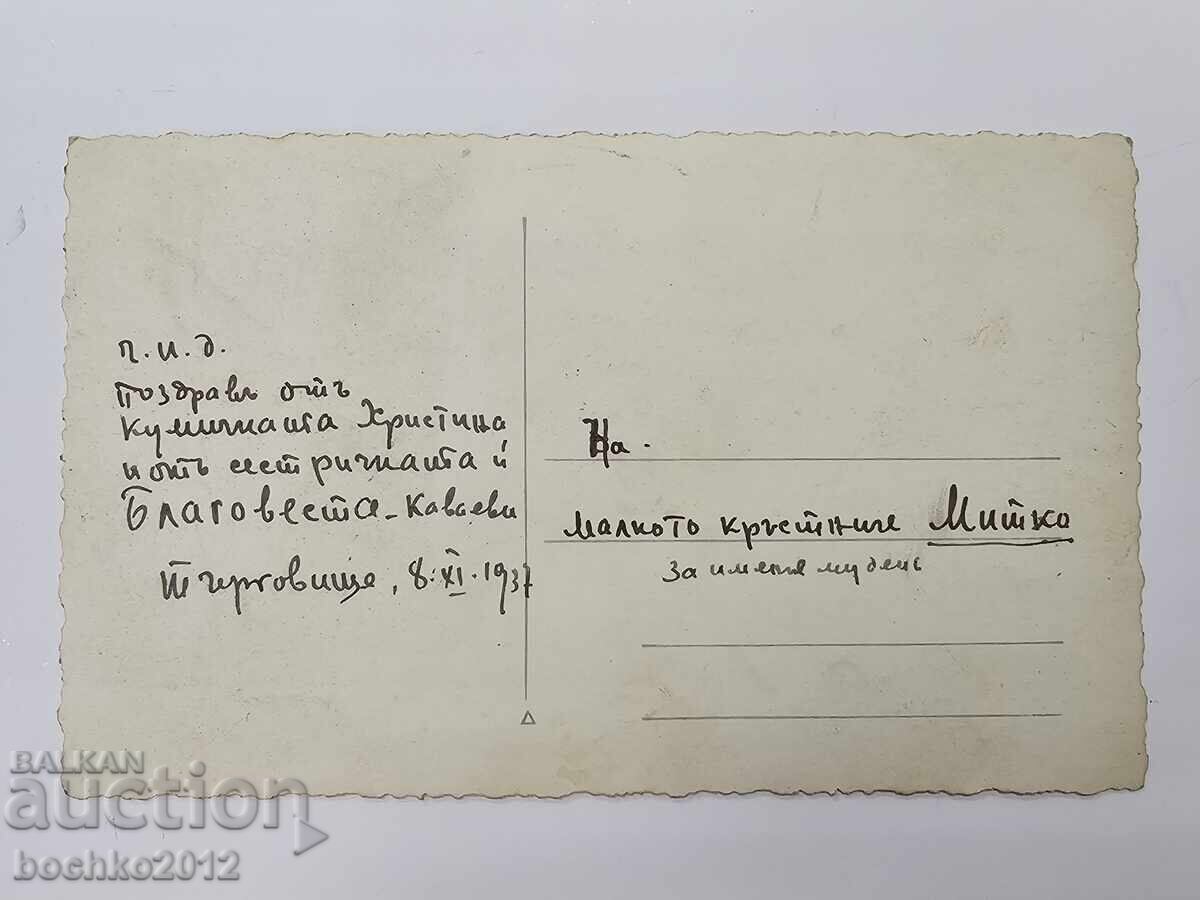 ч.и.д.
Поздравъ отъ
кумичката Христина
и отъ сестричката ѝ
Благовеста - Каваеви
Търговище, 8.XI.1937
На.
малкото кръстниче Митко
за имения му день
BALKAN
auction
bochko2012